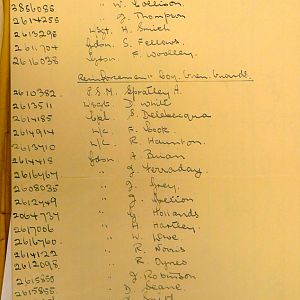 3856085 " W. Collison.
2614255 " J. Thompson
2613298 L/Sgt. H. Smith
2611704 Gdsn. S. Fellows.
2616038 Gdsn. F. Woolley.
Reinforcement Coy. Gren. Guards.
2610382. P.S.M. Spratley H.
2613511 L/Sgt. D. White
2614185 Cpl. S. Delebecque
2614914 L/C. F. Cook.
2613710 L/C. R. Haunton.
2614418 Gdsn. A. Brian
2616467 " J. Ferraday.
2608035 " J. Grey.
2612449 " J.
2604737 " Hollands
2617006 " A. Hartley
2616760 " W. Lowe
2614122 " R. Norris
2612098. " R. Oynes
2615855 " J. Robinson
2615855. " D. Seane.